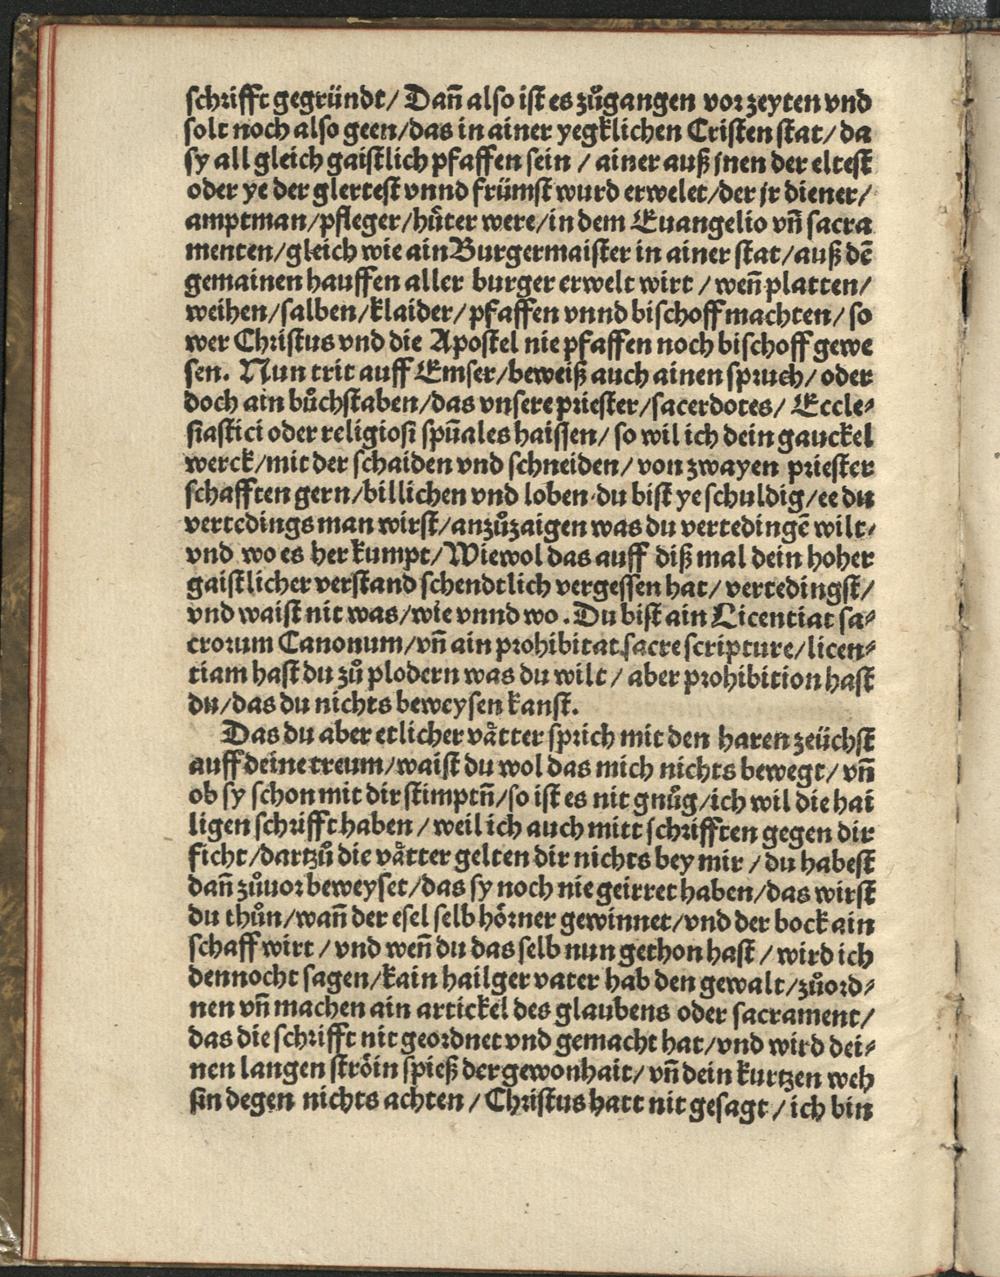 schrifft gegründt/ Dañ also ist es zůgangen vor zeyten vnd
solt noch also geen/das in ainer yegklichen Cristen stat/ da
sy all gleich gaistlich pfaffen sein / ainer auß jnen der eltest
oder ye der glertest vnnd frümst wurd erwelet/der jr diener/
amptman/pfleger/hůter were/in dem Euangelio vñ sacra
menten/gleich wie ain Burgermaister in ainer stat/auß dē
gemainen hauffen aller burger erwelt wirt / weñ platten/
weihen/salben/klaider/pfaffen vnnd bischoff machten/ so
wer Christus vnd die Apostel nie pfaffen noch bischoff gewe
sen. Nun trit auff Emser/beweiß auch ainen spruch/ oder
doch ain bůchstaben/das vnsere priester/sacerdotes/ Eccle⸗
siastici oder religiosi spūales haissen/ so wil ich dein gauckel
werck/mit der schaiden vnd schneiden/ von zwayen priester
schafften gern/billichen vnd loben·du bist ye schuldig/ee du
vertedings man wirst/anzůzaigen was du vertedingē wilt/
vnd wo es her kumpt/Wiewol das auff diß mal dein hoher
gaistlicher verstand schendtlich vergessen hat/ vertedingst/
vnd waist nit was/wie vnnd wo. Du bist ain Licentiat sa⸗
crorum Canonum/vñ ain prohibitat sacre scripture/licen⸗
tiam hast du zů plodern was du wilt / aber prohibition hast
du/das du nichts beweysen kanst.
Das du aber etlicher våtter sprich mit den haren zeüchst
auff deine treum/waist du wol das mich nichts bewegt/ vñ
ob sy schon mit dir stimptñ/so ist es nit gnůg/ich wil die hai
ligen schrifft haben / weil ich auch mitt schrifften gegen dir
ficht/dartzů die våtter gelten dir nichts bey mir / du habest
dañ zůuor beweyset/das sy noch nie geirret haben/das wirst
du thůn/wañ der esel selb hörner gewinnet/vnd der bock ain
schaff wirt / vnd weñ du das selb nun gethon hast / wird ich
dennocht sagen/kain hailger vater hab den gewalt/zůord⸗
nen vñ machen ain artickel des glaubens oder sacrament/
das die schrifft nit geordnet vnd gemacht hat/vnd wird dei⸗
nen langen ströin spieß der gewonhait/ vñ dein kurtzen weh
sin degen nichts achten / Christus hatt nit gesagt / ich bin